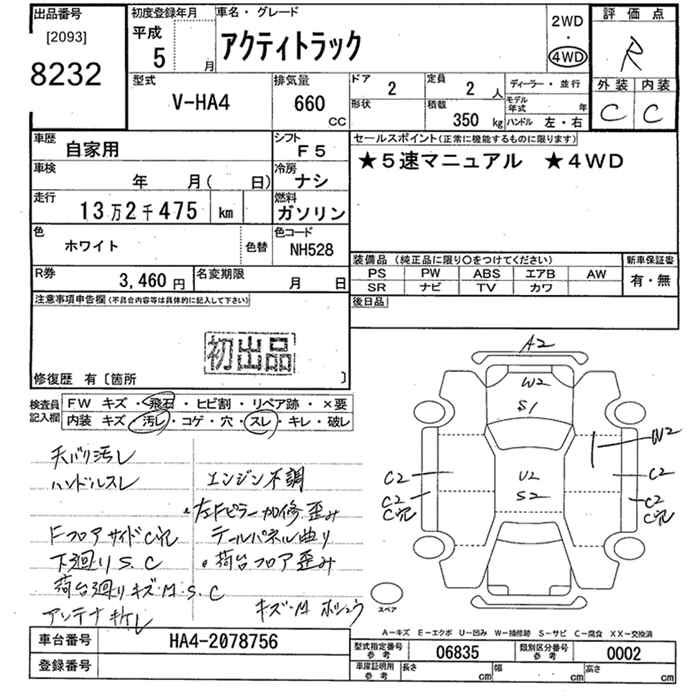 出品番号
[2093]
8232
初度登録年月
平成
5 月
車名・グレード
アクティトラック
2WD
・
4WD
評価点
R
外装 内装
C C
型式
V-HA4
排気量
660
CC
ドア 2
定員 2 人
形状
積載 350 kg
ディーラー・並行
モデル年式 年
ハンドル 左・右
車歴
自家用
シフト
F5
車検
年 月( 日)
冷房
ナシ
走行
13万2千475 km
燃料
ガソリン
色
ホワイト
色替
色コード
NH528
R券
3,460 円
名変期限
月 日
セールスポイント(正常に機能するものに限ります)
★5速マニュアル ★4WD
装備品(純正品に限り○をつけてください)
PS PW ABS エアB AW
SR ナビ TV カワ
新車保証書
有・無
後日品
注意事項申告欄(不具合内容等は具体的に記入して下さい)
初出品
修復歴 有[箇所 ]
検査員
記入欄
FW キズ・飛石・ヒビ割・リペア跡・×要
内装 キズ・汚レ・コゲ・穴・スレ・キレ・破レ
天バリ汚レ
ハンドルスレ
エンジン不調
左Fピラー加修.歪み
Fフロアサイド C穴
テールパネル曲り
下廻り S.C
荷台フロア歪み
荷台廻り キズ.M.S.C
アンテナ キレ
キズ.M ホシュウ
A2
W2
S1
W2
C2
U2
S2
C2
C2
C穴
C2
C穴
スペア
A-キズ E-エクボ U-凹み W-補修跡 S-サビ C-腐食 XX-交換済
車台番号
HA4-2078756
登録番号
型式指定番号
参考
06835
類別区分番号
参考
0002
車庫証明用
参考
長さ cm
幅 cm
高さ cm